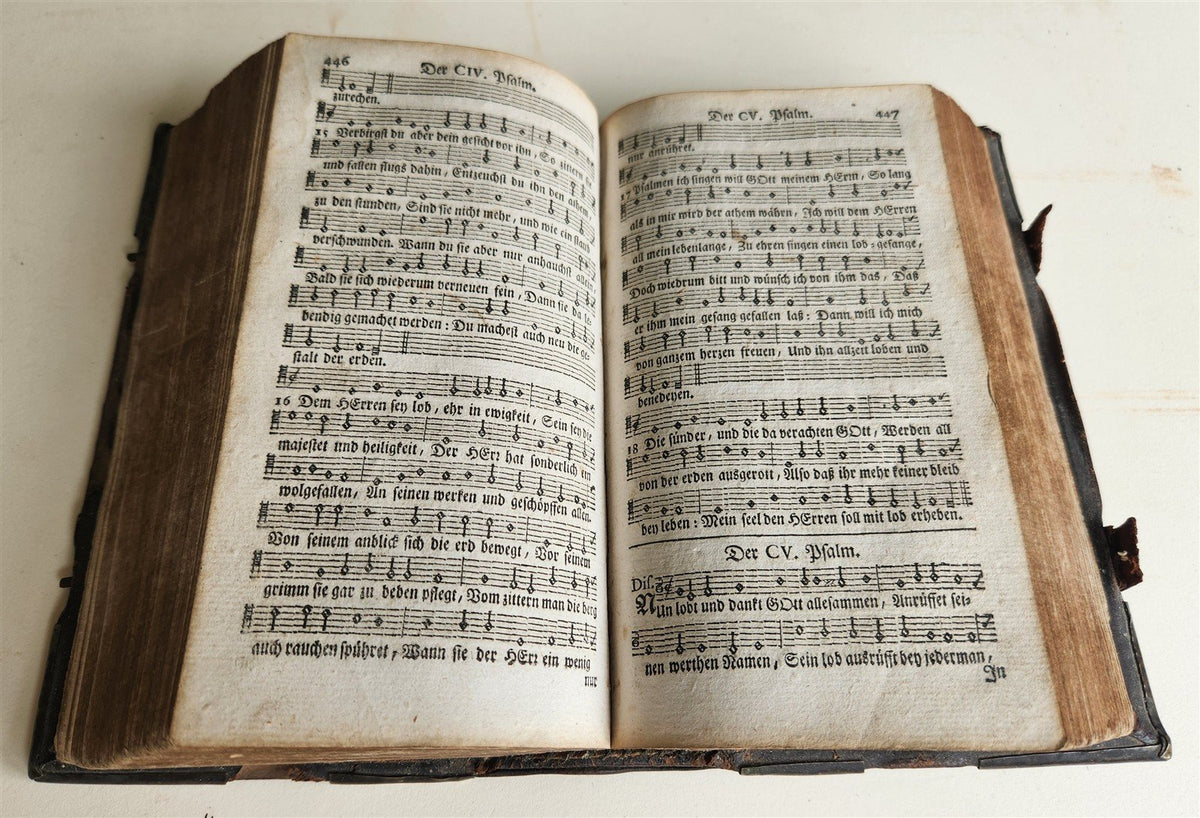 446
Der CIV. Psalm.
zurechen.
15 Verbirgst du aber dein gesicht vor ihn, So zittern
und fallen flugs dahin, Entzeuchst du ihn den athem,
zu den stunden, Sind sie nicht mehr, und wie ein staub
verschwunden. Wann du sie aber nur anhauchst allein,
Bald sie sich wiederum verneuen fein, Dann sie da le-
bendig gemachet werden: Du machest auch neu die ge-
stalt der erden.
16 Dem HErren sey lob, ehr in ewigkeit, Sein sey die
majestet und heiligkeit, Der HErr hat sonderlich ein
wolgefallen, An seinen werken und geschöpffen allen.
Von seinem anblick sich die erd bewegt, Vor seinem
grimm sie gar zu beben pflegt, Vom zittern man die berg
auch rauchen spühret, Wann sie der HErr ein wenig
nur
Der CV. Psalm.
447
nur anrühret.
17 Psalmen ich singen will GOtt meinem HErrn, So lang
als in mir wird der athem währen, Ich will dem HErren
all mein lebenlange, Zu ehren singen einen lob-gesange,
Doch wiedrum bitt und wünsch ich von ihm das, Daß
er ihm mein gesang gefallen laß: Dann will ich mich
von ganzem herzen freuen, Und ihn allzeit loben und
benedeyen.
18 Die sünder, und die da verachten GOtt, Werden all
von der erden ausgerott, Also daß ihr mehr keiner bleib
bey leben: Mein seel den HErren soll mit lob erheben.
Der CV. Psalm.
Dis.
NUn lobt und dankt GOtt allesammen, Anrüffet sei-
nen werthen Namen, Sein lob ausrüfft bey jederman,
In